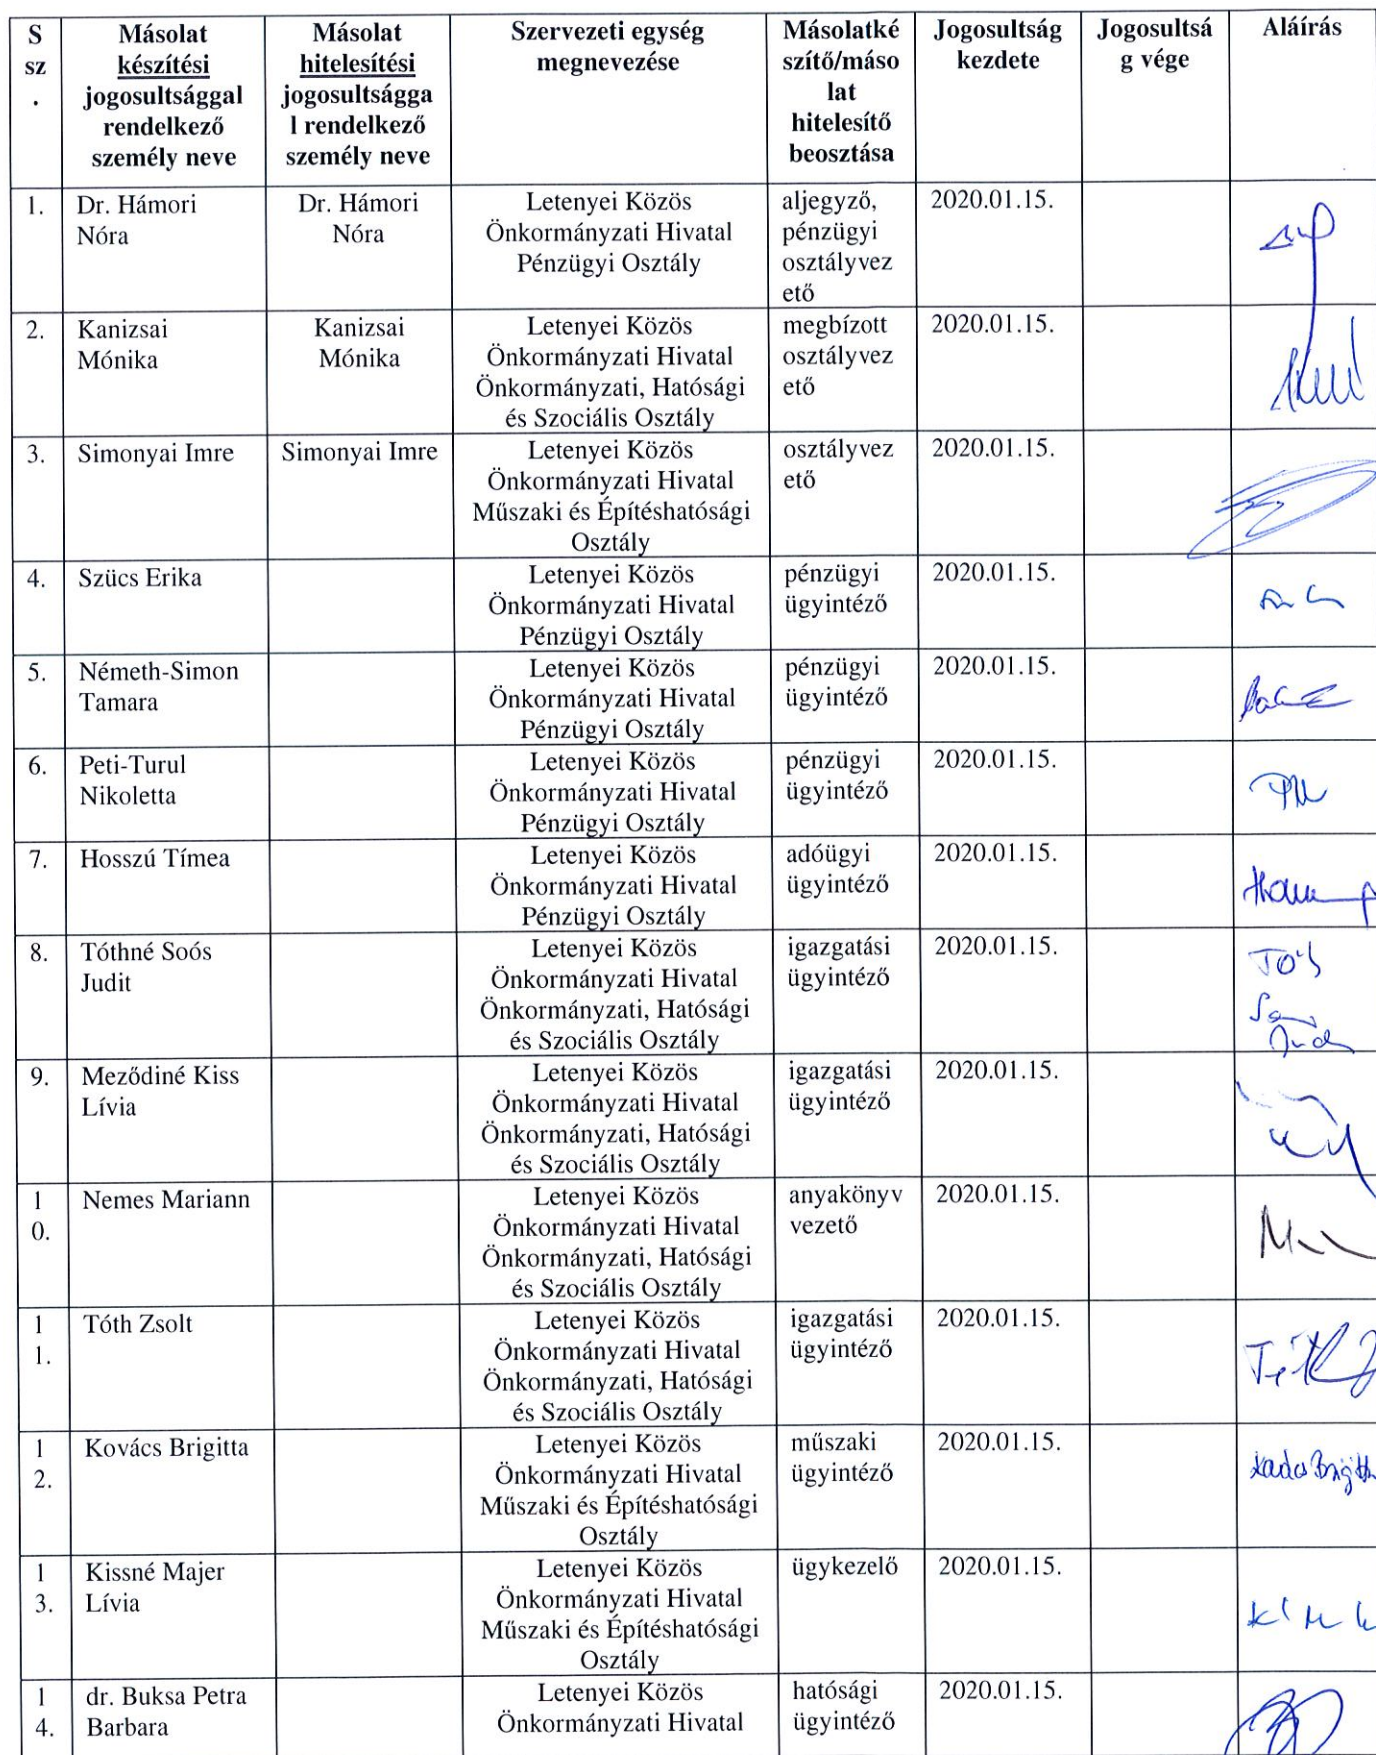 S
sz
.
Másolat
készítési
jogosultsággal
rendelkező
személy neve
Másolat
hitelesítési
jogosultságga
l rendelkező
személy neve
Szervezeti egység
megnevezése
Másolatké
szítő/máso
lat
hitelesítő
beosztása
Jogosultság
kezdete
Jogosultsá
g vége
Aláírás
1.
Dr. Hámori
Nóra
Dr. Hámori
Nóra
Letenyei Közös
Önkormányzati Hivatal
Pénzügyi Osztály
aljegyző,
pénzügyi
osztályvez
ető
2020.01.15.
2.
Kanizsai
Mónika
Kanizsai
Mónika
Letenyei Közös
Önkormányzati Hivatal
Önkormányzati, Hatósági
és Szociális Osztály
megbízott
osztályvez
ető
2020.01.15.
3.
Simonyai Imre
Simonyai Imre
Letenyei Közös
Önkormányzati Hivatal
Műszaki és Építéshatósági
Osztály
osztályvez
ető
2020.01.15.
4.
Szücs Erika
Letenyei Közös
Önkormányzati Hivatal
Pénzügyi Osztály
pénzügyi
ügyintéző
2020.01.15.
5.
Németh-Simon
Tamara
Letenyei Közös
Önkormányzati Hivatal
Pénzügyi Osztály
pénzügyi
ügyintéző
2020.01.15.
6.
Peti-Turul
Nikoletta
Letenyei Közös
Önkormányzati Hivatal
Pénzügyi Osztály
pénzügyi
ügyintéző
2020.01.15.
7.
Hosszú Tímea
Letenyei Közös
Önkormányzati Hivatal
Pénzügyi Osztály
adóügyi
ügyintéző
2020.01.15.
8.
Tóthné Soós
Judit
Letenyei Közös
Önkormányzati Hivatal
Önkormányzati, Hatósági
és Szociális Osztály
igazgatási
ügyintéző
2020.01.15.
9.
Meződiné Kiss
Lívia
Letenyei Közös
Önkormányzati Hivatal
Önkormányzati, Hatósági
és Szociális Osztály
igazgatási
ügyintéző
2020.01.15.
1
0.
Nemes Mariann
Letenyei Közös
Önkormányzati Hivatal
Önkormányzati, Hatósági
és Szociális Osztály
anyakönyv
vezető
2020.01.15.
1
1.
Tóth Zsolt
Letenyei Közös
Önkormányzati Hivatal
Önkormányzati, Hatósági
és Szociális Osztály
igazgatási
ügyintéző
2020.01.15.
1
2.
Kovács Brigitta
Letenyei Közös
Önkormányzati Hivatal
Műszaki és Építéshatósági
Osztály
műszaki
ügyintéző
2020.01.15.
1
3.
Kissné Majer
Lívia
Letenyei Közös
Önkormányzati Hivatal
Műszaki és Építéshatósági
Osztály
ügykezelő
2020.01.15.
1
4.
dr. Buksa Petra
Barbara
Letenyei Közös
Önkormányzati Hivatal
hatósági
ügyintéző
2020.01.15.